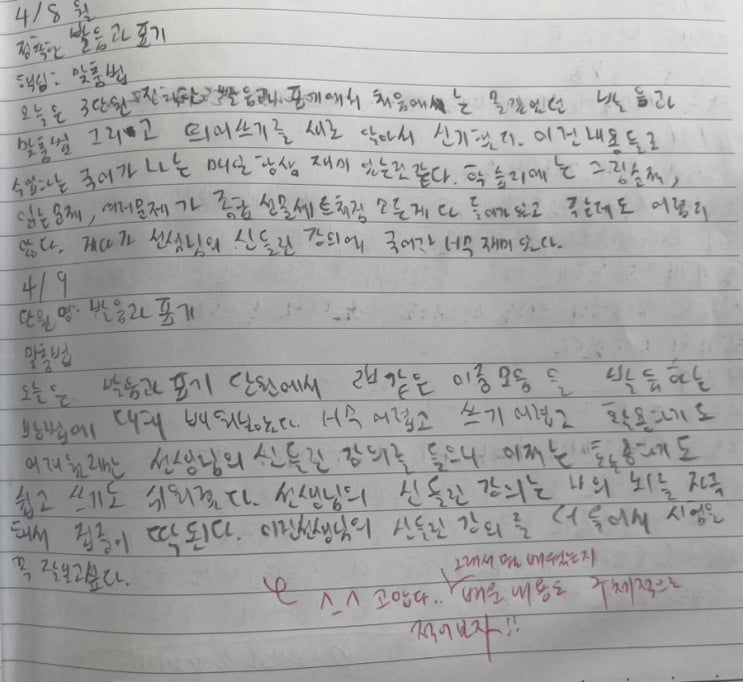 4/8 월
정확한 발음과 표기
핵심: 맞춤법
오늘은 3단원 정확한 발음과 표기에서 처음에는 몰랐었던 발음과
맞춤법 그리고 띄어쓰기를 새로 알아서 신기했다. 이런내용들로
수업하는 국어가 나는 매일 항상 재미있는것같다. 학습지에는 그림문제,
읽는문제, 여러문제가 종합 선물세트처럼 모든게 다 들어가있고 푸는데도 어렵지
않다. 게다가 선생님의 신들린 강의에 국어가 너무 재미있다.
4/9
단원명: 발음과 표기
맞춤법
오늘은 발음과 표기 단원에서 같은 이중모음을 발음하는
방법에 대해 배워보았다. 너무 어렵고 쓰기 어렵고 활용하기도
어려웠는데 선생님의 신들린 강의를 들으니 이제는 활용하기도
쉽고 쓰기도 쉬워졌다. 선생님의 신들린 강의는 나의 뇌를 자극
해서 집중이 딱된다. 선생님의 신들린 강의를 더 들어서 시험을
꼭 잘보고싶다.
^_^ 고맙다.. 그래서 뭘 배웠는지
배운 내용도 구체적으로
적어보자!!